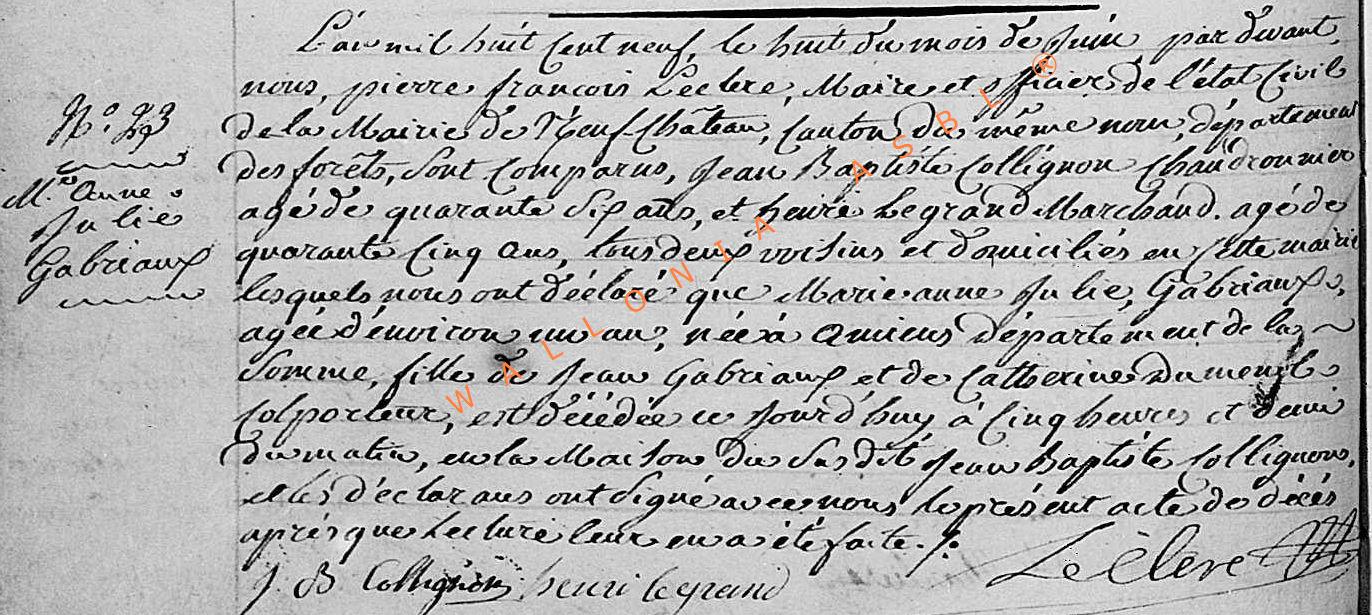 L'an mil huit cent neuf, le huit du mois de Juin par devant
nous, pierre françois Leclere, Maire et officier de l'état Civil
de la Mairie de Neufchâteau, Canton du même nom, département
des forêts, sont comparus, Jean Baptiste Collignon Chaudronnier
agé de quarante six ans, et henri Legrand Marchand. agé de
quarante Cinq ans, tous deux voisins et domiciliés en cette mairie
lesquels nous ont déclaré que Marie anne Julie, Gabriaux,
agée d'environ un an, née à amiens département de la
Somme, fille de Jean Gabriaux et de Catherine Dumenil
Colporteur, est décédée ce Jourd'huy à Cinq heures et demi
du matin, en la Maison du susdit Jean Baptiste Collignon,
et les déclarans ont signé avec nous le présent acte de décés
aprés que Lecture leur en a été faite./.
J B Collignon henri legrand Leclere
N°.
M.ie anne
Julie
Gabriaux
WALLONIA ASBL ®